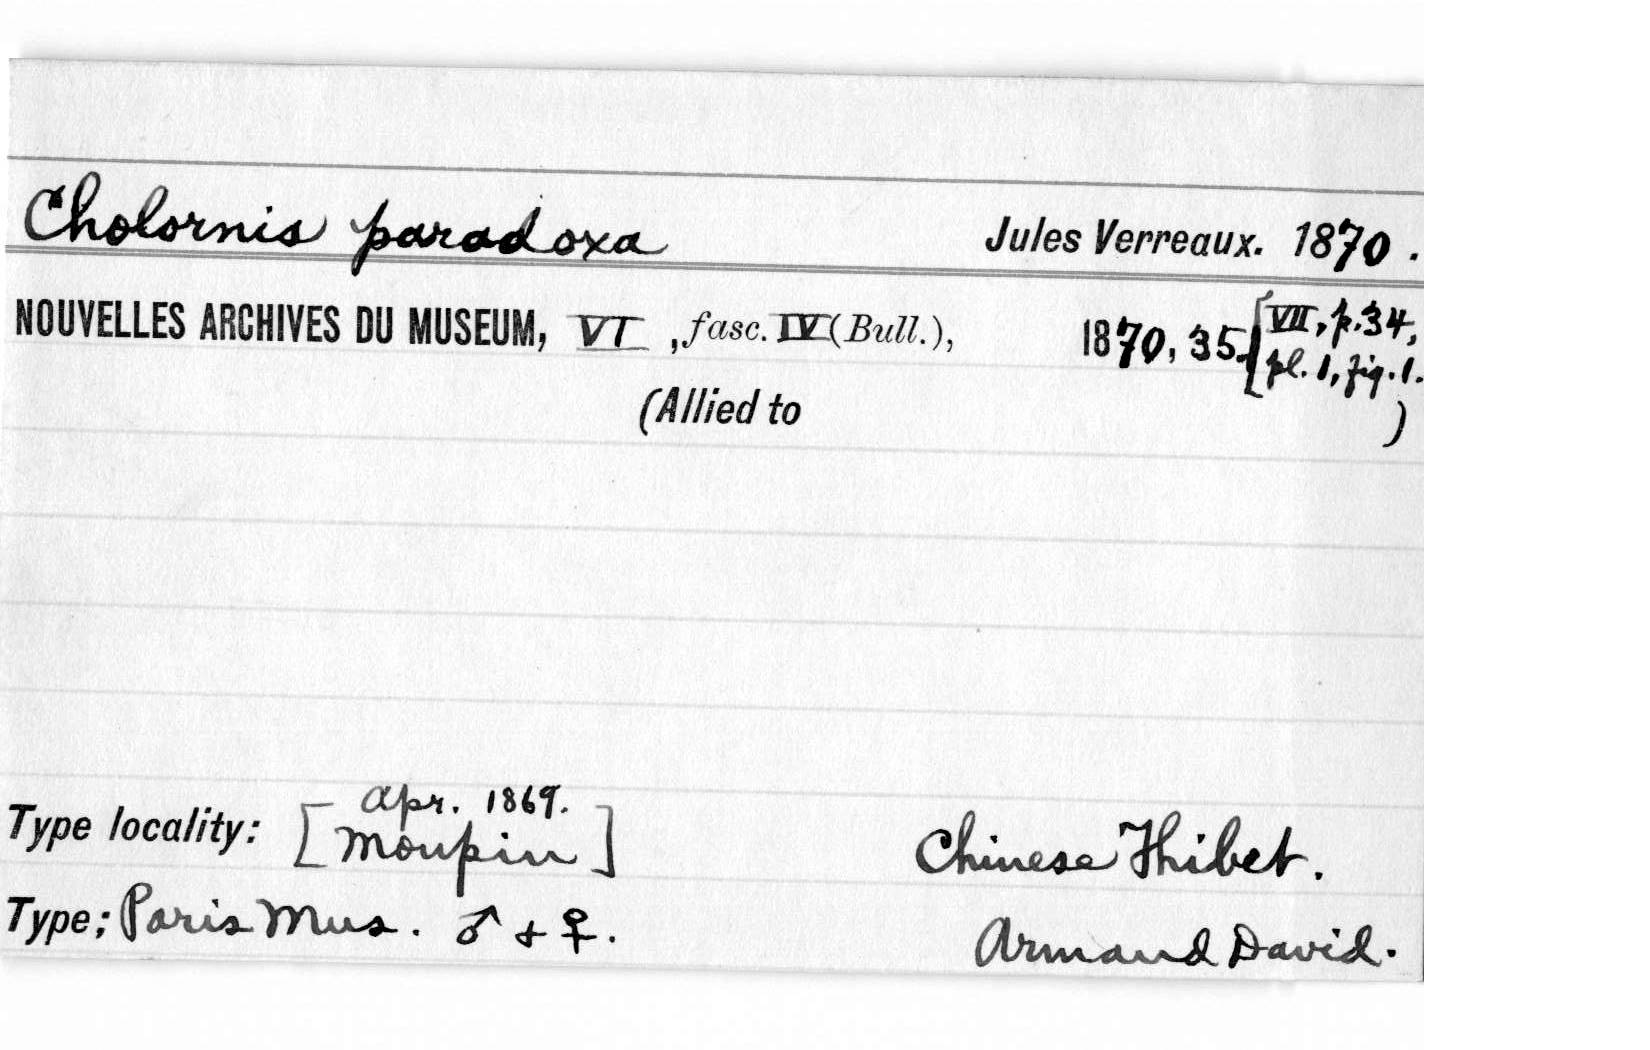 Cholornis paradoxa Jules Verreaux. 1870.
NOUVELLES ARCHIVES DU MUSEUM, VI, fasc. IV (Bull.), 1870, 35. [VII, p. 34,
pl. 1, fig. 1.
(Allied to )
Apr. 1869.
Type locality: [Moupin] Chinese Thibet.
Type; Paris Mus. ♂ + ♀. Armand David.